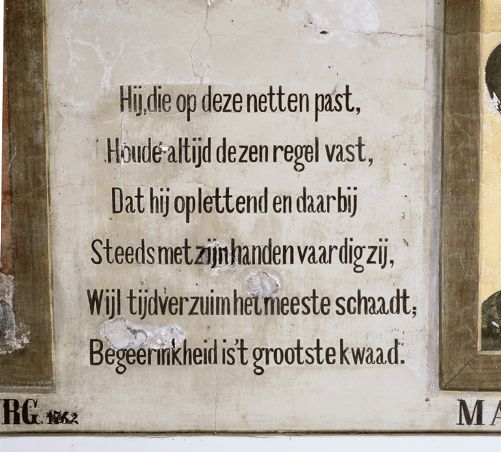 Hij, die op deze netten past,
Houde altijd dezen regel vast,
Dat hij oplettend en daarbij
Steeds met zijn handen vaardig zij,
Wijl tijdverzuim het meeste schaadt;
Begeerinkheid is't grootste kwaad.
RG. 1762
MA